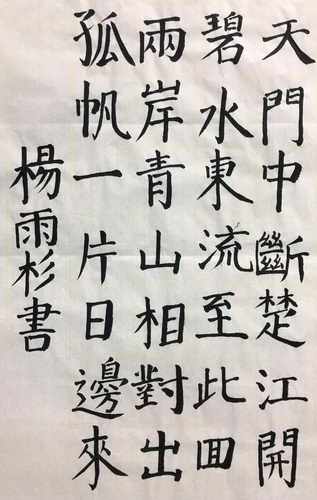 天門中斷楚江開
碧水東流至此回
兩岸青山相對出
孤帆一片日邊來
楊雨杉書